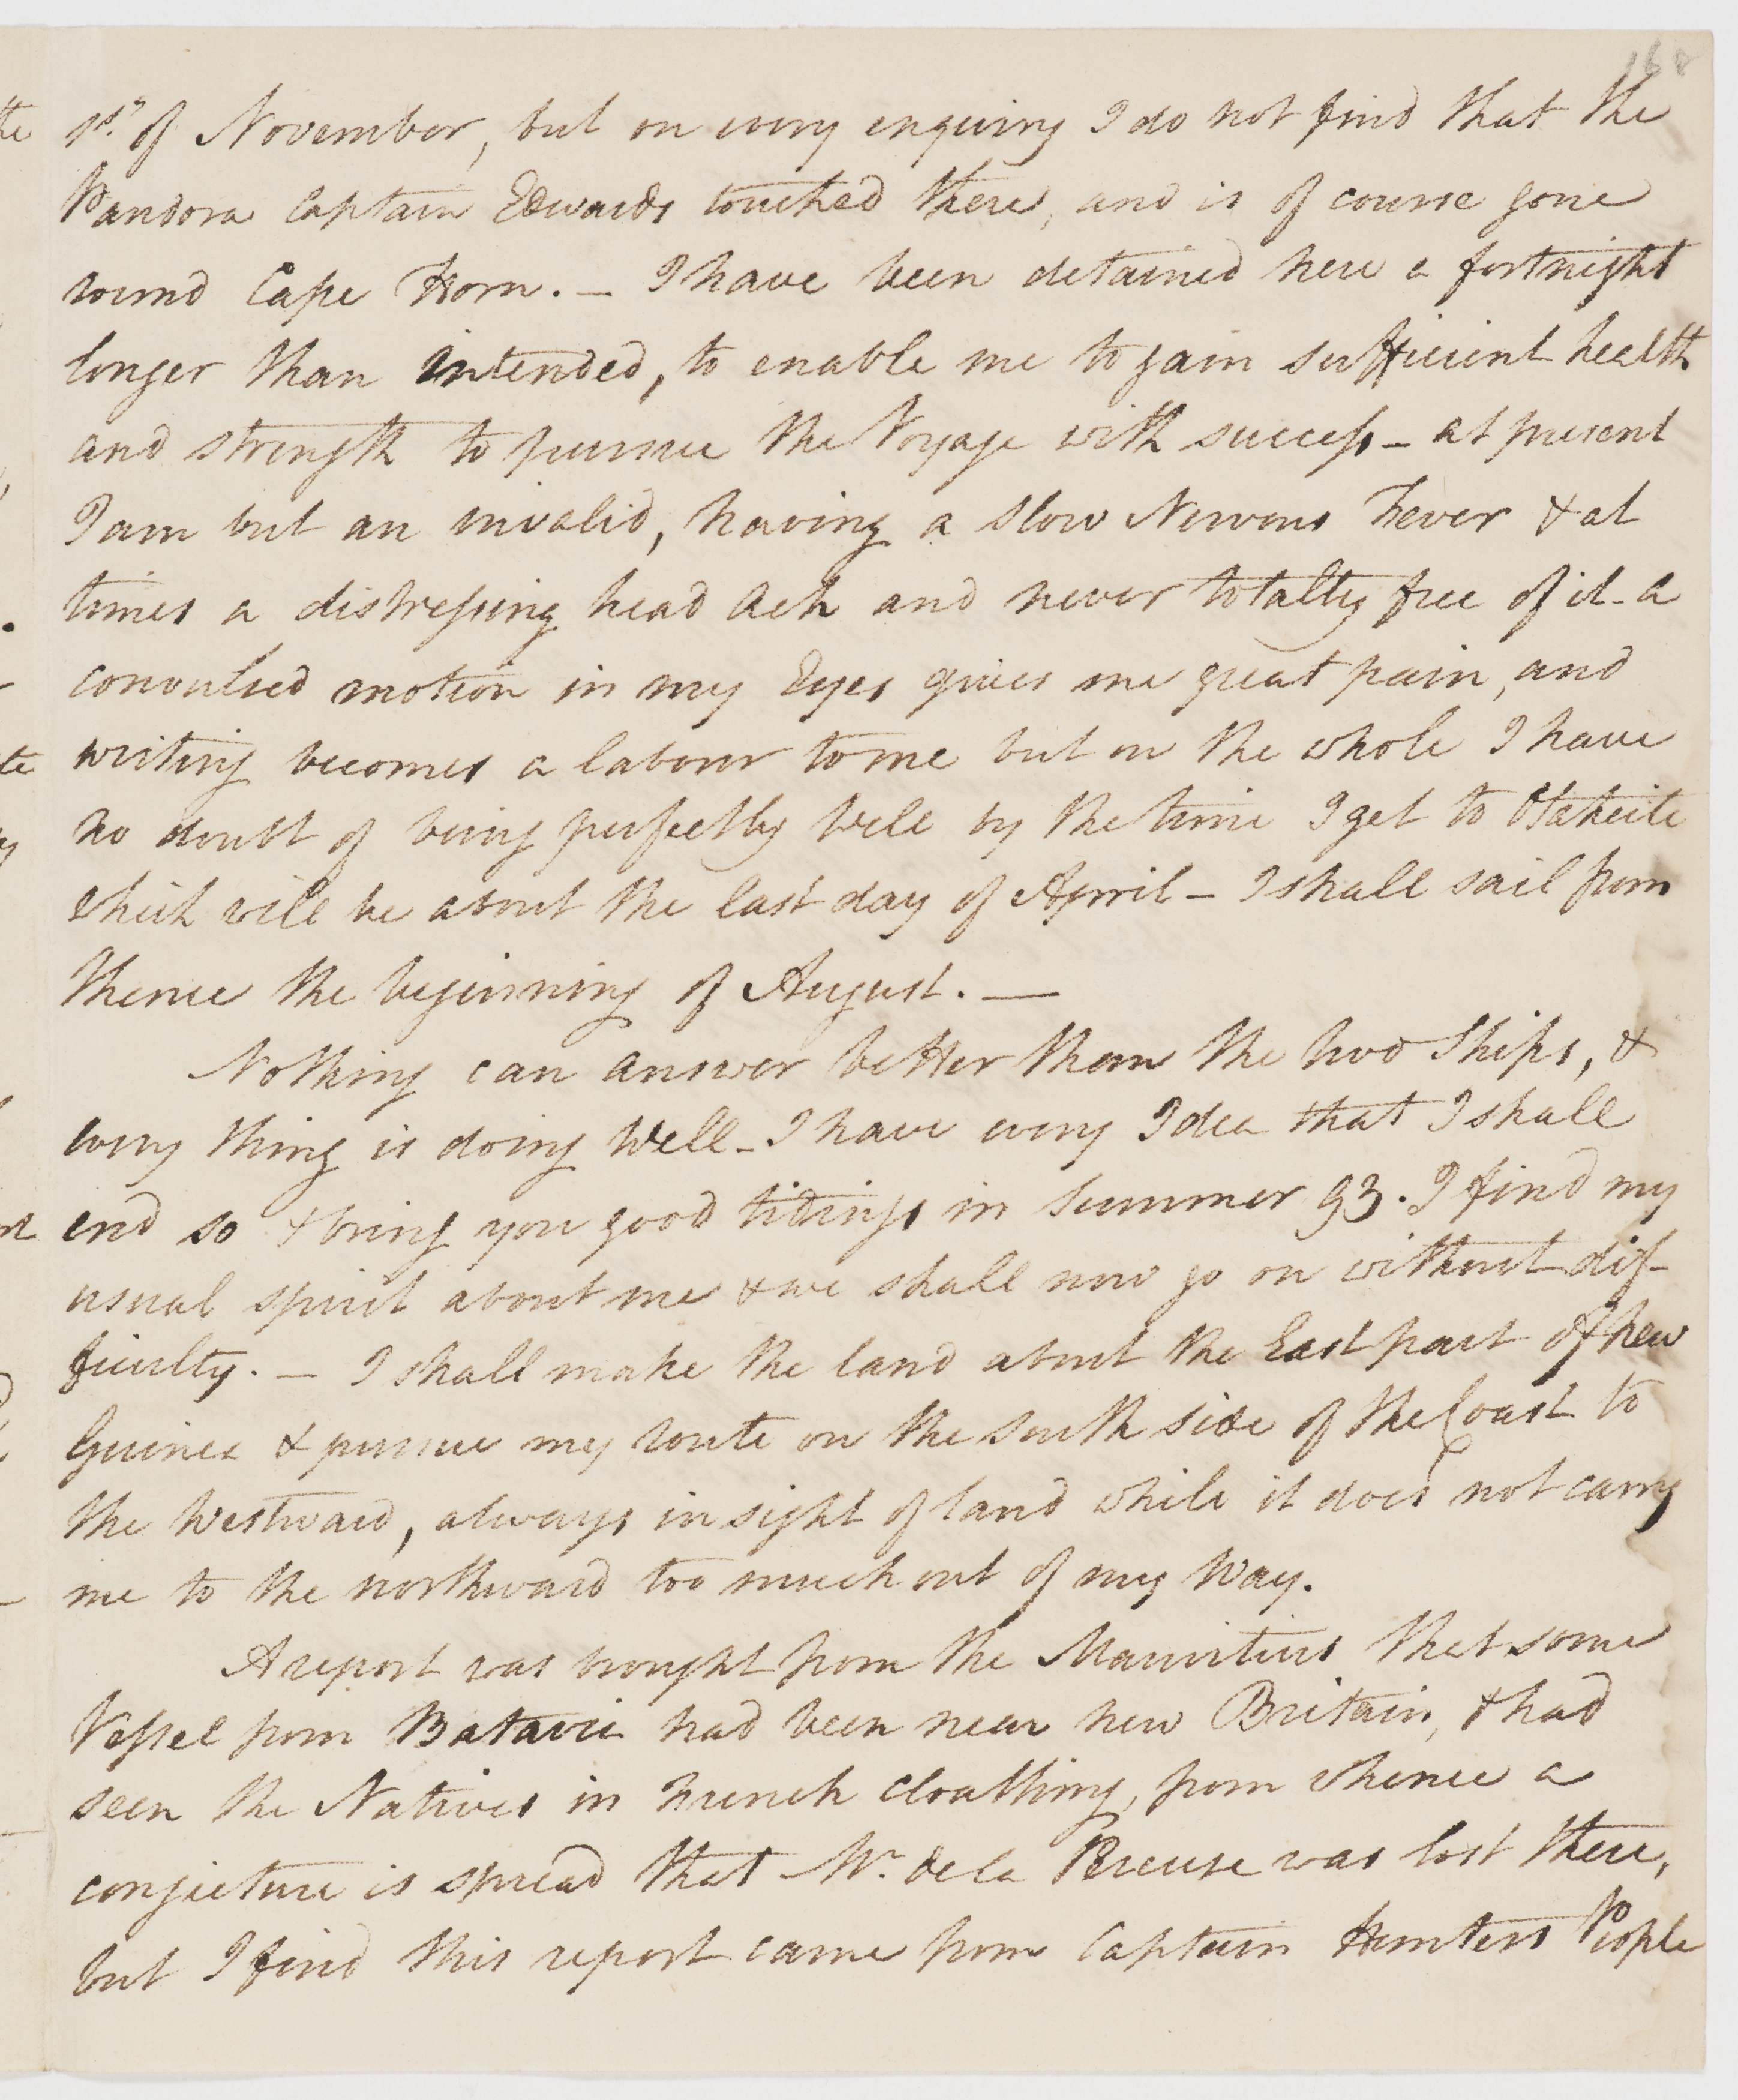 168
1st. of November, but on every enquiry I do not find that the
Pandora Captain Edwards touched there, and is of course gone
round Cape Horn. — I have been detained here a fortnight
longer than intended, to enable me to gain sufficient health
and strength to pursue the Voyage with success — at present
I am but an invalid, having a slow Nervous Fever & at
times a distressing head Ach and never totally free of it — a
convulsed motion in my Eyes gives me great pain, and
writing becomes a labour to me but on the whole I have
no doubt of being perfectly well by the time I get to Otaheite
which will be about the last day of April — I shall sail from
thence the beginning of August. —
Nothing can answer better than the two Ships, &
every thing is doing Well — I have every Idea that I shall
end so & bring you good tidings in Summer 93. I find my
usual spirit about me & we shall now go on without dif-
ficulty. — I shall make the land about the East part of New
Guinea & pursue my route on the South side of the Coast to
the Westward, always in sight of land while it does not carry
me to the northward too much out of my Way.
A report was brought from the Mauritius that some
Vessel from Batavia had been near New Britain, & had
seen the Natives in French Cloathing, from whence a
conjecture is spread that Mr. de la Pereuse was lost there,
but I find this report came from Captain Hunters People